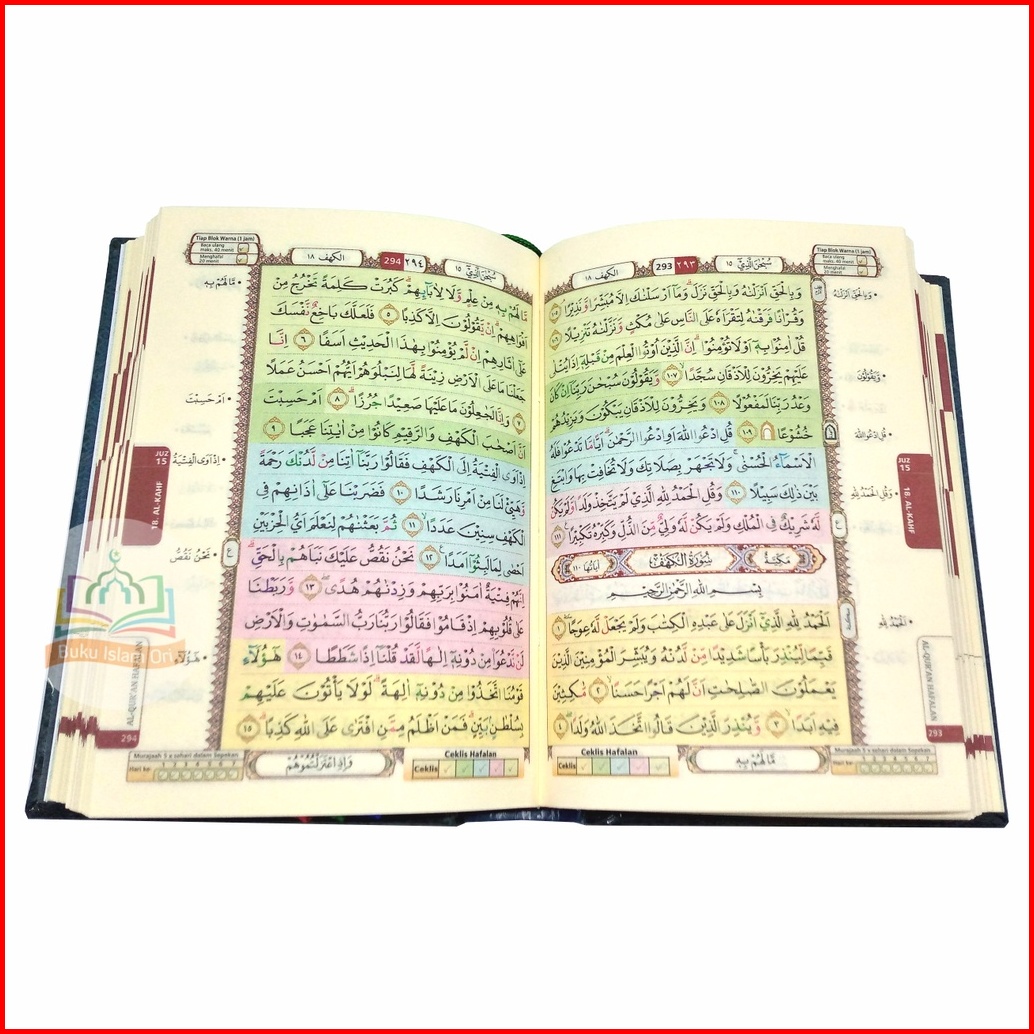 Tiap Blok Warna (1 jam)
Baca ulang maks. 40 menit
Menghafal 20 menit
سُبْحٰنَ الَّذِيْٓ ١٥
293 ٢٩٣
الكهف ١٨
وَبِالْحَقِّ اَنْزَلْنٰهُ وَبِالْحَقِّ نَزَلَۗ وَمَآ اَرْسَلْنٰكَ اِلَّا مُبَشِّرًا وَّنَذِيْرًاۘ ١٠٥
وَقُرْاٰنًا فَرَقْنٰهُ لِتَقْرَاَهٗ عَلَى النَّاسِ عَلٰى مُكْثٍ وَّنَزَّلْنٰهُ تَنْزِيْلًا ١٠٦
قُلْ اٰمِنُوْا بِهٖٓ اَوْ لَا تُؤْمِنُوْاۗ اِنَّ الَّذِيْنَ اُوْتُوا الْعِلْمَ مِنْ قَبْلِهٖٓ اِذَا يُتْلٰى
عَلَيْهِمْ يَخِرُّوْنَ لِلْاَذْقَانِ سُجَّدًا ١٠٧ وَّيَقُوْلُوْنَ سُبْحٰنَ رَبِّنَآ اِنْ كَانَ
وَعْدُ رَبِّنَا لَمَفْعُوْلًا ١٠٨ وَيَخِرُّوْنَ لِلْاَذْقَانِ يَبْكُوْنَ وَيَزِيْدُهُمْ
خُشُوْعًا ۩ ١٠٩ قُلِ ادْعُوا اللّٰهَ اَوِ ادْعُوا الرَّحْمٰنَۗ اَيًّا مَّا تَدْعُوْا فَلَهُ
الْاَسْمَاۤءُ الْحُسْنٰىۚ وَلَا تَجْهَرْ بِصَلَاتِكَ وَلَا تُخَافِتْ بِهَا وَابْتَغِ
بَيْنَ ذٰلِكَ سَبِيْلًا ١١٠ وَقُلِ الْحَمْدُ لِلّٰهِ الَّذِيْ لَمْ يَتَّخِذْ وَلَدًا وَّلَمْ يَكُنْ
لَّهٗ شَرِيْكٌ فِى الْمُلْكِ وَلَمْ يَكُنْ لَّهٗ وَلِيٌّ مِّنَ الذُّلِّ وَكَبِّرْهُ تَكْبِيْرًا ١١١
مَكِّيَّةٌ سُوْرَةُ الْكَهْفِ اٰيَاتُهَا ١١٠
بِسْمِ اللّٰهِ الرَّحْمٰنِ الرَّحِيْمِ
اَلْحَمْدُ لِلّٰهِ الَّذِيْٓ اَنْزَلَ عَلٰى عَبْدِهِ الْكِتٰبَ وَلَمْ يَجْعَلْ لَّهٗ عِوَجًا ١
قَيِّمًا لِّيُنْذِرَ بَأْسًا شَدِيْدًا مِّنْ لَّدُنْهُ وَيُبَشِّرَ الْمُؤْمِنِيْنَ الَّذِيْنَ
يَعْمَلُوْنَ الصّٰلِحٰتِ اَنَّ لَهُمْ اَجْرًا حَسَنًا ٢ مَّاكِثِيْنَ
فِيْهِ اَبَدًا ٣ وَّيُنْذِرَ الَّذِيْنَ قَالُوا اتَّخَذَ اللّٰهُ وَلَدًا ٤
وَبِالْحَقِّ اَنْزَلْنٰهُ
وَيَقُوْلُوْنَ
قُلِ ادْعُوا اللّٰهَ
وَقُلِ الْحَمْدُ لِلّٰهِ
اَلْحَمْدُ لِلّٰهِ
JUZ 15
18. AL-KAHF
AL-QUR'AN HAFALAN
293
Ceklis Hafalan
Ceklis
مَّا لَهُمْ بِهٖ
Murajaah 5 x sehari dalam Sepekan
Hari ke:
Tiap Blok Warna (1 jam)
Baca ulang maks. 40 menit
Menghafal 20 menit
سُبْحٰنَ الَّذِيْٓ ١٥
294 ٢٩٤
الكهف ١٨
مَّا لَهُمْ بِهٖ مِنْ عِلْمٍ وَّلَا لِاٰبَاۤىِٕهِمْۗ كَبُرَتْ كَلِمَةً تَخْرُجُ مِنْ
اَفْوَاهِهِمْۗ اِنْ يَّقُوْلُوْنَ اِلَّا كَذِبًا ٥ فَلَعَلَّكَ بَاخِعٌ نَّفْسَكَ
عَلٰٓى اٰثَارِهِمْ اِنْ لَّمْ يُؤْمِنُوْا بِهٰذَا الْحَدِيْثِ اَسَفًا ٦ اِنَّا
جَعَلْنَا مَا عَلَى الْاَرْضِ زِيْنَةً لَّهَا لِنَبْلُوَهُمْ اَيُّهُمْ اَحْسَنُ عَمَلًا
٧ وَاِنَّا لَجٰعِلُوْنَ مَا عَلَيْهَا صَعِيْدًا جُرُزًاۗ ٨ اَمْ حَسِبْتَ
اَنَّ اَصْحٰبَ الْكَهْفِ وَالرَّقِيْمِ كَانُوْا مِنْ اٰيٰتِنَا عَجَبًا ٩
اِذْ اَوَى الْفِتْيَةُ اِلَى الْكَهْفِ فَقَالُوْا رَبَّنَآ اٰتِنَا مِنْ لَّدُنْكَ رَحْمَةً
وَّهَيِّئْ لَنَا مِنْ اَمْرِنَا رَشَدًا ١٠ فَضَرَبْنَا عَلٰٓى اٰذَانِهِمْ فِى
الْكَهْفِ سِنِيْنَ عَدَدًاۙ ١١ ثُمَّ بَعَثْنٰهُمْ لِنَعْلَمَ اَيُّ الْحِزْبَيْنِ
اَحْصٰى لِمَا لَبِثُوْٓا اَمَدًا ١٢ نَحْنُ نَقُصُّ عَلَيْكَ نَبَاَهُمْ بِالْحَقِّۗ
اِنَّهُمْ فِتْيَةٌ اٰمَنُوْا بِرَبِّهِمْ وَزِدْنٰهُمْ هُدًىۖ ١٣ وَّرَبَطْنَا
عَلٰى قُلُوْبِهِمْ اِذْ قَامُوْا فَقَالُوْا رَبُّنَا رَبُّ السَّمٰوٰتِ وَالْاَرْضِ
لَنْ نَّدْعُوَا۟ مِنْ دُوْنِهٖٓ اِلٰهًا لَّقَدْ قُلْنَآ اِذًا شَطَطًا ١٤ هٰٓؤُلَاۤءِ
قَوْمُنَا اتَّخَذُوْا مِنْ دُوْنِهٖٓ اٰلِهَةًۗ لَوْلَا يَأْتُوْنَ عَلَيْهِمْ
بِسُلْطٰنٍۢ بَيِّنٍۗ فَمَنْ اَظْلَمُ مِمَّنِ افْتَرٰى عَلَى اللّٰهِ كَذِبًاۗ ١٥
مَّا لَهُمْ بِهٖ
اَمْ حَسِبْتَ
اِذْ اَوَى الْفِتْيَةُ
نَحْنُ نَقُصُّ
هٰٓؤُلَاۤءِ
JUZ 15
18. AL-KAHF
AL-QUR'AN HAFALAN
294
Ceklis Hafalan
Ceklis
وَاِذِ اعْتَزَلْتُمُوْهُمْ
Murajaah 5 x sehari dalam Sepekan
Hari ke:
Buku Islami Ori